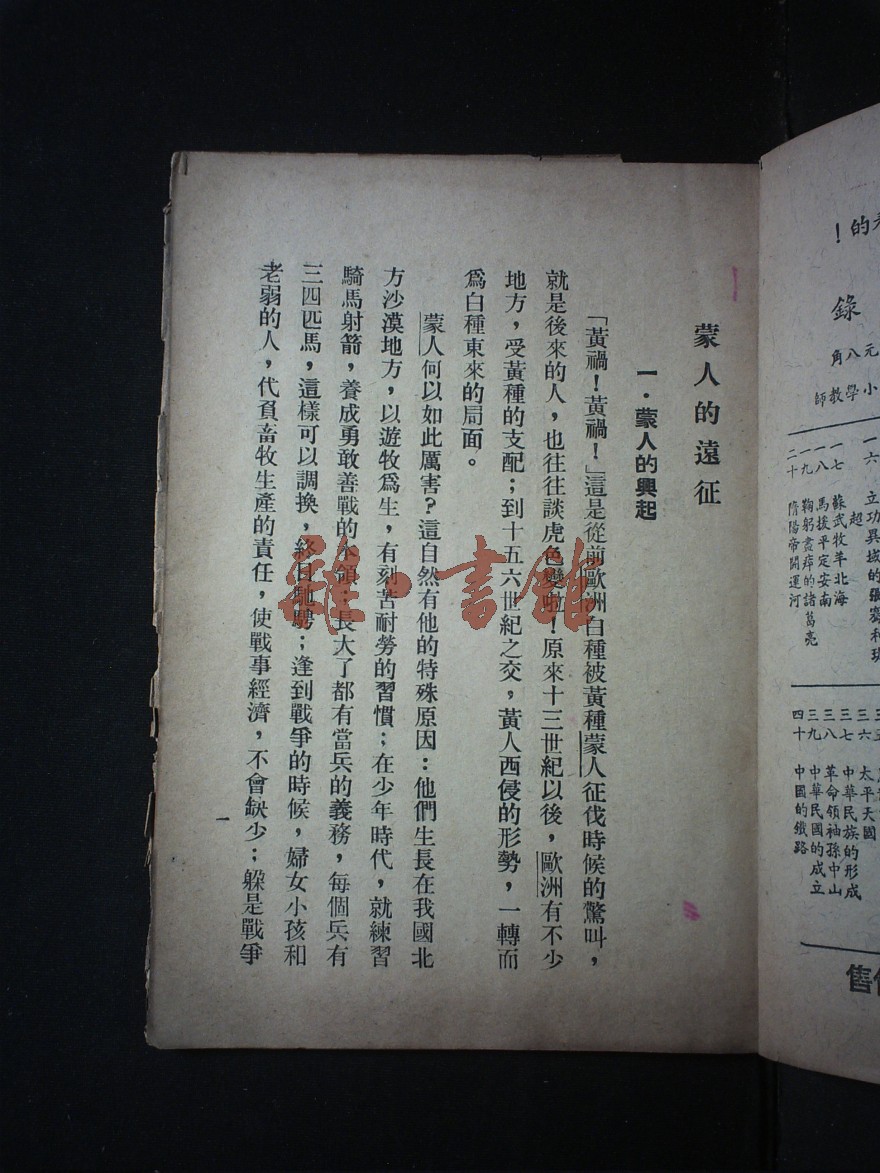 蒙人的遠征
一·蒙人的興起
「黃禍！黃禍！」這是從前歐洲白種被黃種蒙人征伐時候的驚叫，
就是後來的人，也往往談虎色變啦！原來十三世紀以後，歐洲有不少
地方，受黃種的支配；到十五六世紀之交，黃人西侵的形勢，一轉而
爲白種東來的局面。
蒙人何以如此厲害？這自然有他的特殊原因：他們生長在我國北
方沙漠地方，以遊牧爲生，有刻苦耐勞的習慣；在少年時代，就練習
騎馬射箭，養成勇敢善戰的本領；長大了都有當兵的義務，每個兵有
三四匹馬，這樣可以調換，終日馳騁；逢到戰爭的時候，婦女小孩和
老弱的人，代負畜牧生產的責任，使戰事經濟，不會缺少；躲是戰爭
一
的！
錄
元八角
小學教師
一六 立功異域的張騫和班超
一七 蘇武牧羊北海
一八 馬援平定安南
一九 鞠躬盡瘁的諸葛亮
二十 隋煬帝開運河
三六 太平天國
三七 中華民族的形成
三八 革命領袖孫中山
三九 中華民國的成立
四十 中國的鐵路
售
雜一書館